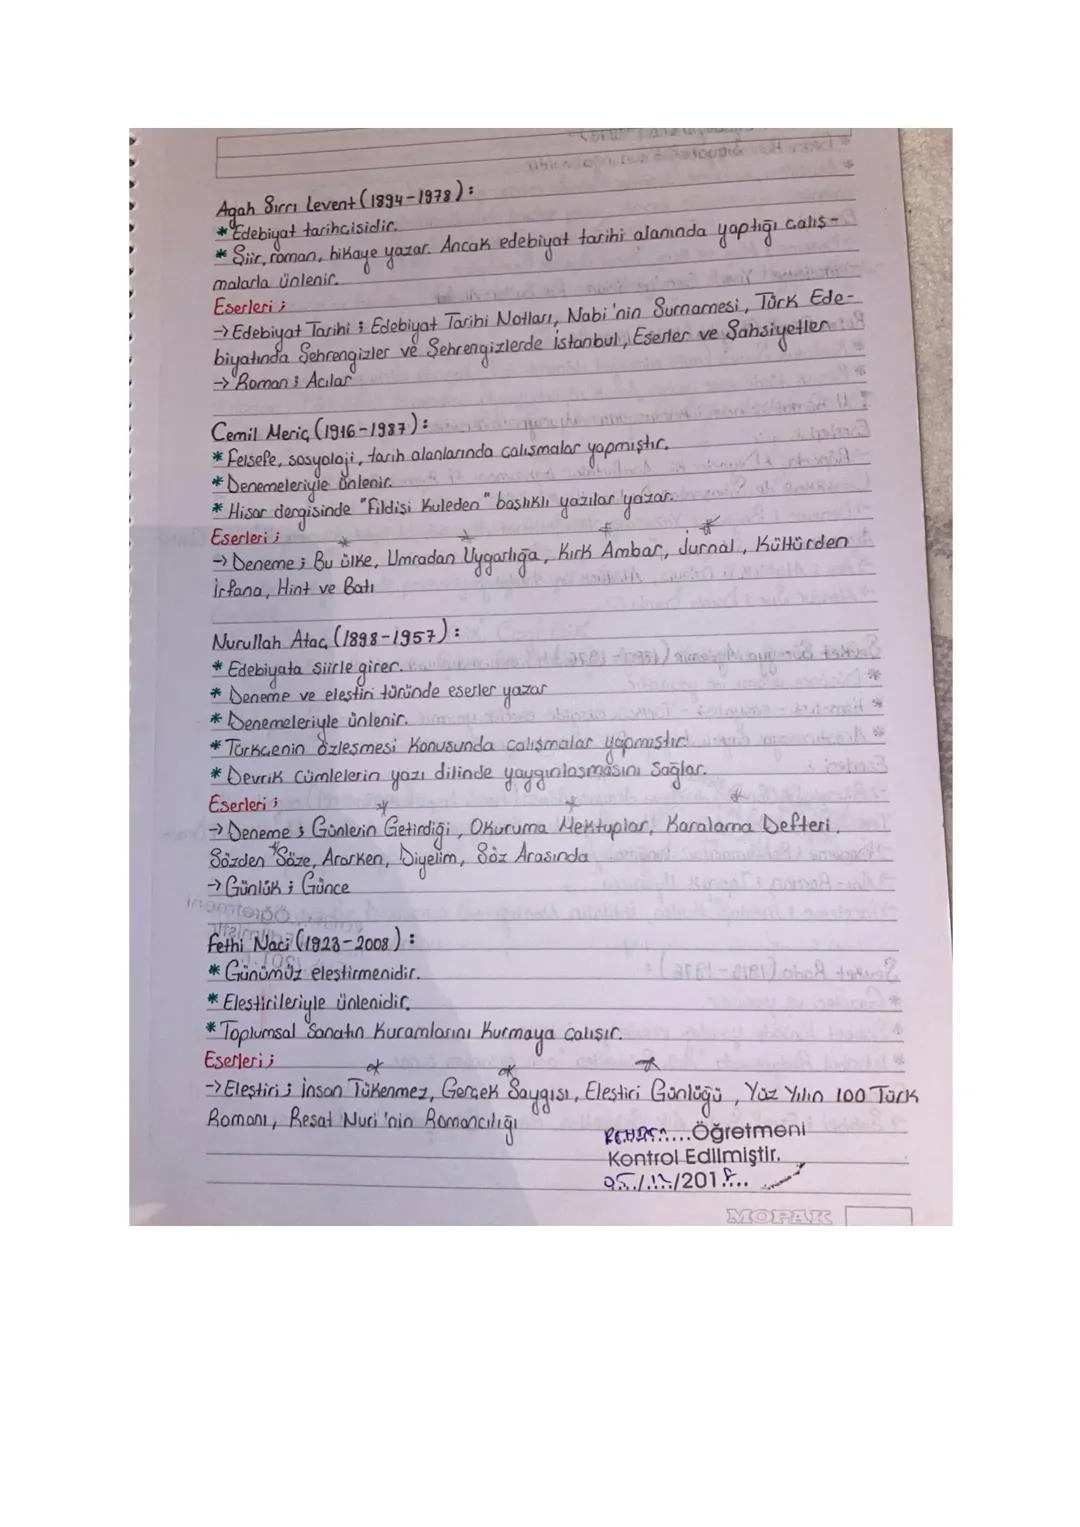 Agah Sırrı Levent (1894-1978):
* Edebiyat tarihçisidir.
* Şiir, roman, hikaye yazar. Ancak edebiyat tarihi alanında yaptığı çalış-
malarla ünlenir.
Eserleri;
→ Edebiyat Tarihi; Edebiyat Tarihi Notları, Nabi'nin Surnamesi, Türk Ede-
biyatında Şehrengizler ve Şehrengizlerde İstanbul, Eserler ve Şahsiyetler
→ Roman; Acılar
Cemil Meriç (1916-1987):
* Felsefe, sosyoloji, tarih alanlarında çalışmalar yapmıştır.
* Denemeleriyle ünlenir.
* Hisar dergisinde "Fildişi Kuleden" başlıklı yazılar yazar.
Eserleri;
→ Deneme; Bu ülke, Umradan Uygarlığa, Kırk Ambar, Jurnal, Kültürden
İrfana, Hint ve Batı
Nurullah Ataç (1898-1957):
* Edebiyata şiirle girer.
* Deneme ve eleştiri türünde eserler yazar
* Denemeleriyle ünlenir.
* Türkçenin özleşmesi konusunda çalışmalar yapmıştır.
* Devrik cümlelerin yazı dilinde yaygınlaşmasını sağlar.
Eserleri;
→ Deneme; Günlerin Getirdiği, Okuruma Mektuplar, Karalama Defteri,
Sözden Söze, Ararken, Diyelim, Söz Arasında
→ Günlük; Günce
Fethi Naci (1923-2008):
* Günümüz eleştirmenidir.
* Eleştirileriyle ünlenidir.
* Toplumsal Sanatın Kuramlarını Kurmaya çalışır.
Eserleri;
→ Eleştiri; İnsan Tükenmez, Gerçek Saygısı, Eleştiri Günlüğü, Yüz Yılın 100 Türk
Romanı, Reşat Nuri'nin Romancılığı
Öğretmeni
Kontrol Edilmiştir.
MOPAK